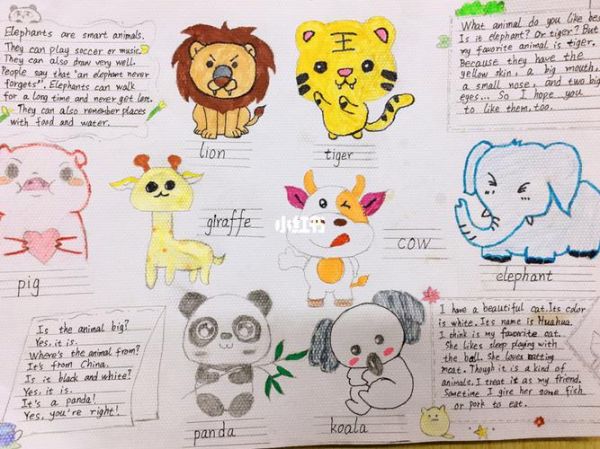 Elephants are smart animals.
They can play soccer or music.
They can also draw very well.
People say that "an elephant never
forgets". Elephants can walk
for a long time and never get lost.
They can also remember places
with food and water.
What animal do you like best?
Is it elephant? Or tiger? But
my favorite animal is tiger.
Because they have the
yellow skin, a big mouth,
a small nose, and two big
eyes... So I hope you
to like them, too.
lion
tiger
pig
giraffe
小红书
cow
elephant
Is the animal big?
Yes, it is.
Where's the animal from?
It's from China.
Is it black and white?
Yes, it is.
It's a panda!
Yes, you're right!
panda
koala
I have a beautiful cat. Its color
is white. Its name is Huahua.
I think is my favorite cat.
She likes sleep playing with
the ball. She loves eatting
meat. Though it is a kind of
animals. I treat it as my friend.
Sometime I give her some fish
or pork to eat.